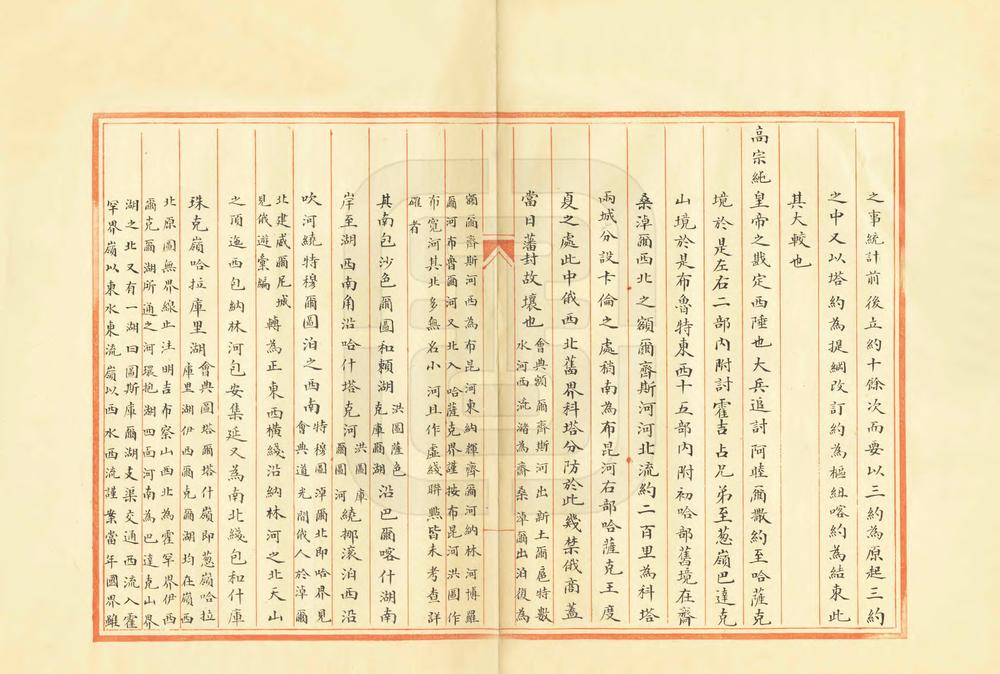 之事統計前後立約十餘次而要以三約為原起三約
之中又以塔約為提綱改訂約為樞紐喀約為結束此
其大較也
高宗純皇帝之戡定西陲也大兵追討阿睦爾撒約至哈薩克
境於是左右二部內附討霍吉占兄弟至葱嶺巴達克
山境於是布魯特東西十五部內附初哈部舊境在齋
桑淖爾西北之額爾齊斯河河北流約二百里為科塔
兩城分設卡倫之處稍南為布昆河右部哈薩克王度
夏之處此中俄西北舊界科塔分防於此幾禁俄商蓋
當日藩封故壤也
會典額爾齊斯河出新土爾扈特數
水河西流瀦為齋桑淖爾出泊復為
額爾齊斯河西為布昆河東納輝齊爾河納林河博羅
爾河布魯爾河又北入哈薩克界謹按布昆河洪圖作
布寬河其北多無名小河且作虛綫聯㸃皆未考查詳
確者
其南包沙色爾圖和賴湖
洪圖薩色
克庫爾湖
沿巴爾喀什湖南
岸至湖西南角沿哈什塔克河
洪圖庫
爾圖河
繞挪滾泊西沿
吹河繞特穆爾圖泊之西南
特穆圖淖爾北即哈界見
會典道光間俄人於淖爾
北建威爾尼城
見俄遊彙編
轉為正東西橫綫沿納林河之北天山
之頂迤西包納林河包安集延又為南北綫包和什庫
珠克嶺哈拉庫里湖
會典圖塔爾塔什嶺即葱嶺哈拉
庫里湖伊西爾克爾湖均在嶺西
北原圖無界線止注明吉布察山西北為霍罕界伊西
爾克爾湖所通之河環抱湖四面河南為巴達克山界
湖之北又有一湖曰圖斯庫爾湖支渠交通西流入霍
罕界嶺以東水東流嶺以西水西流謹案當年國界雖